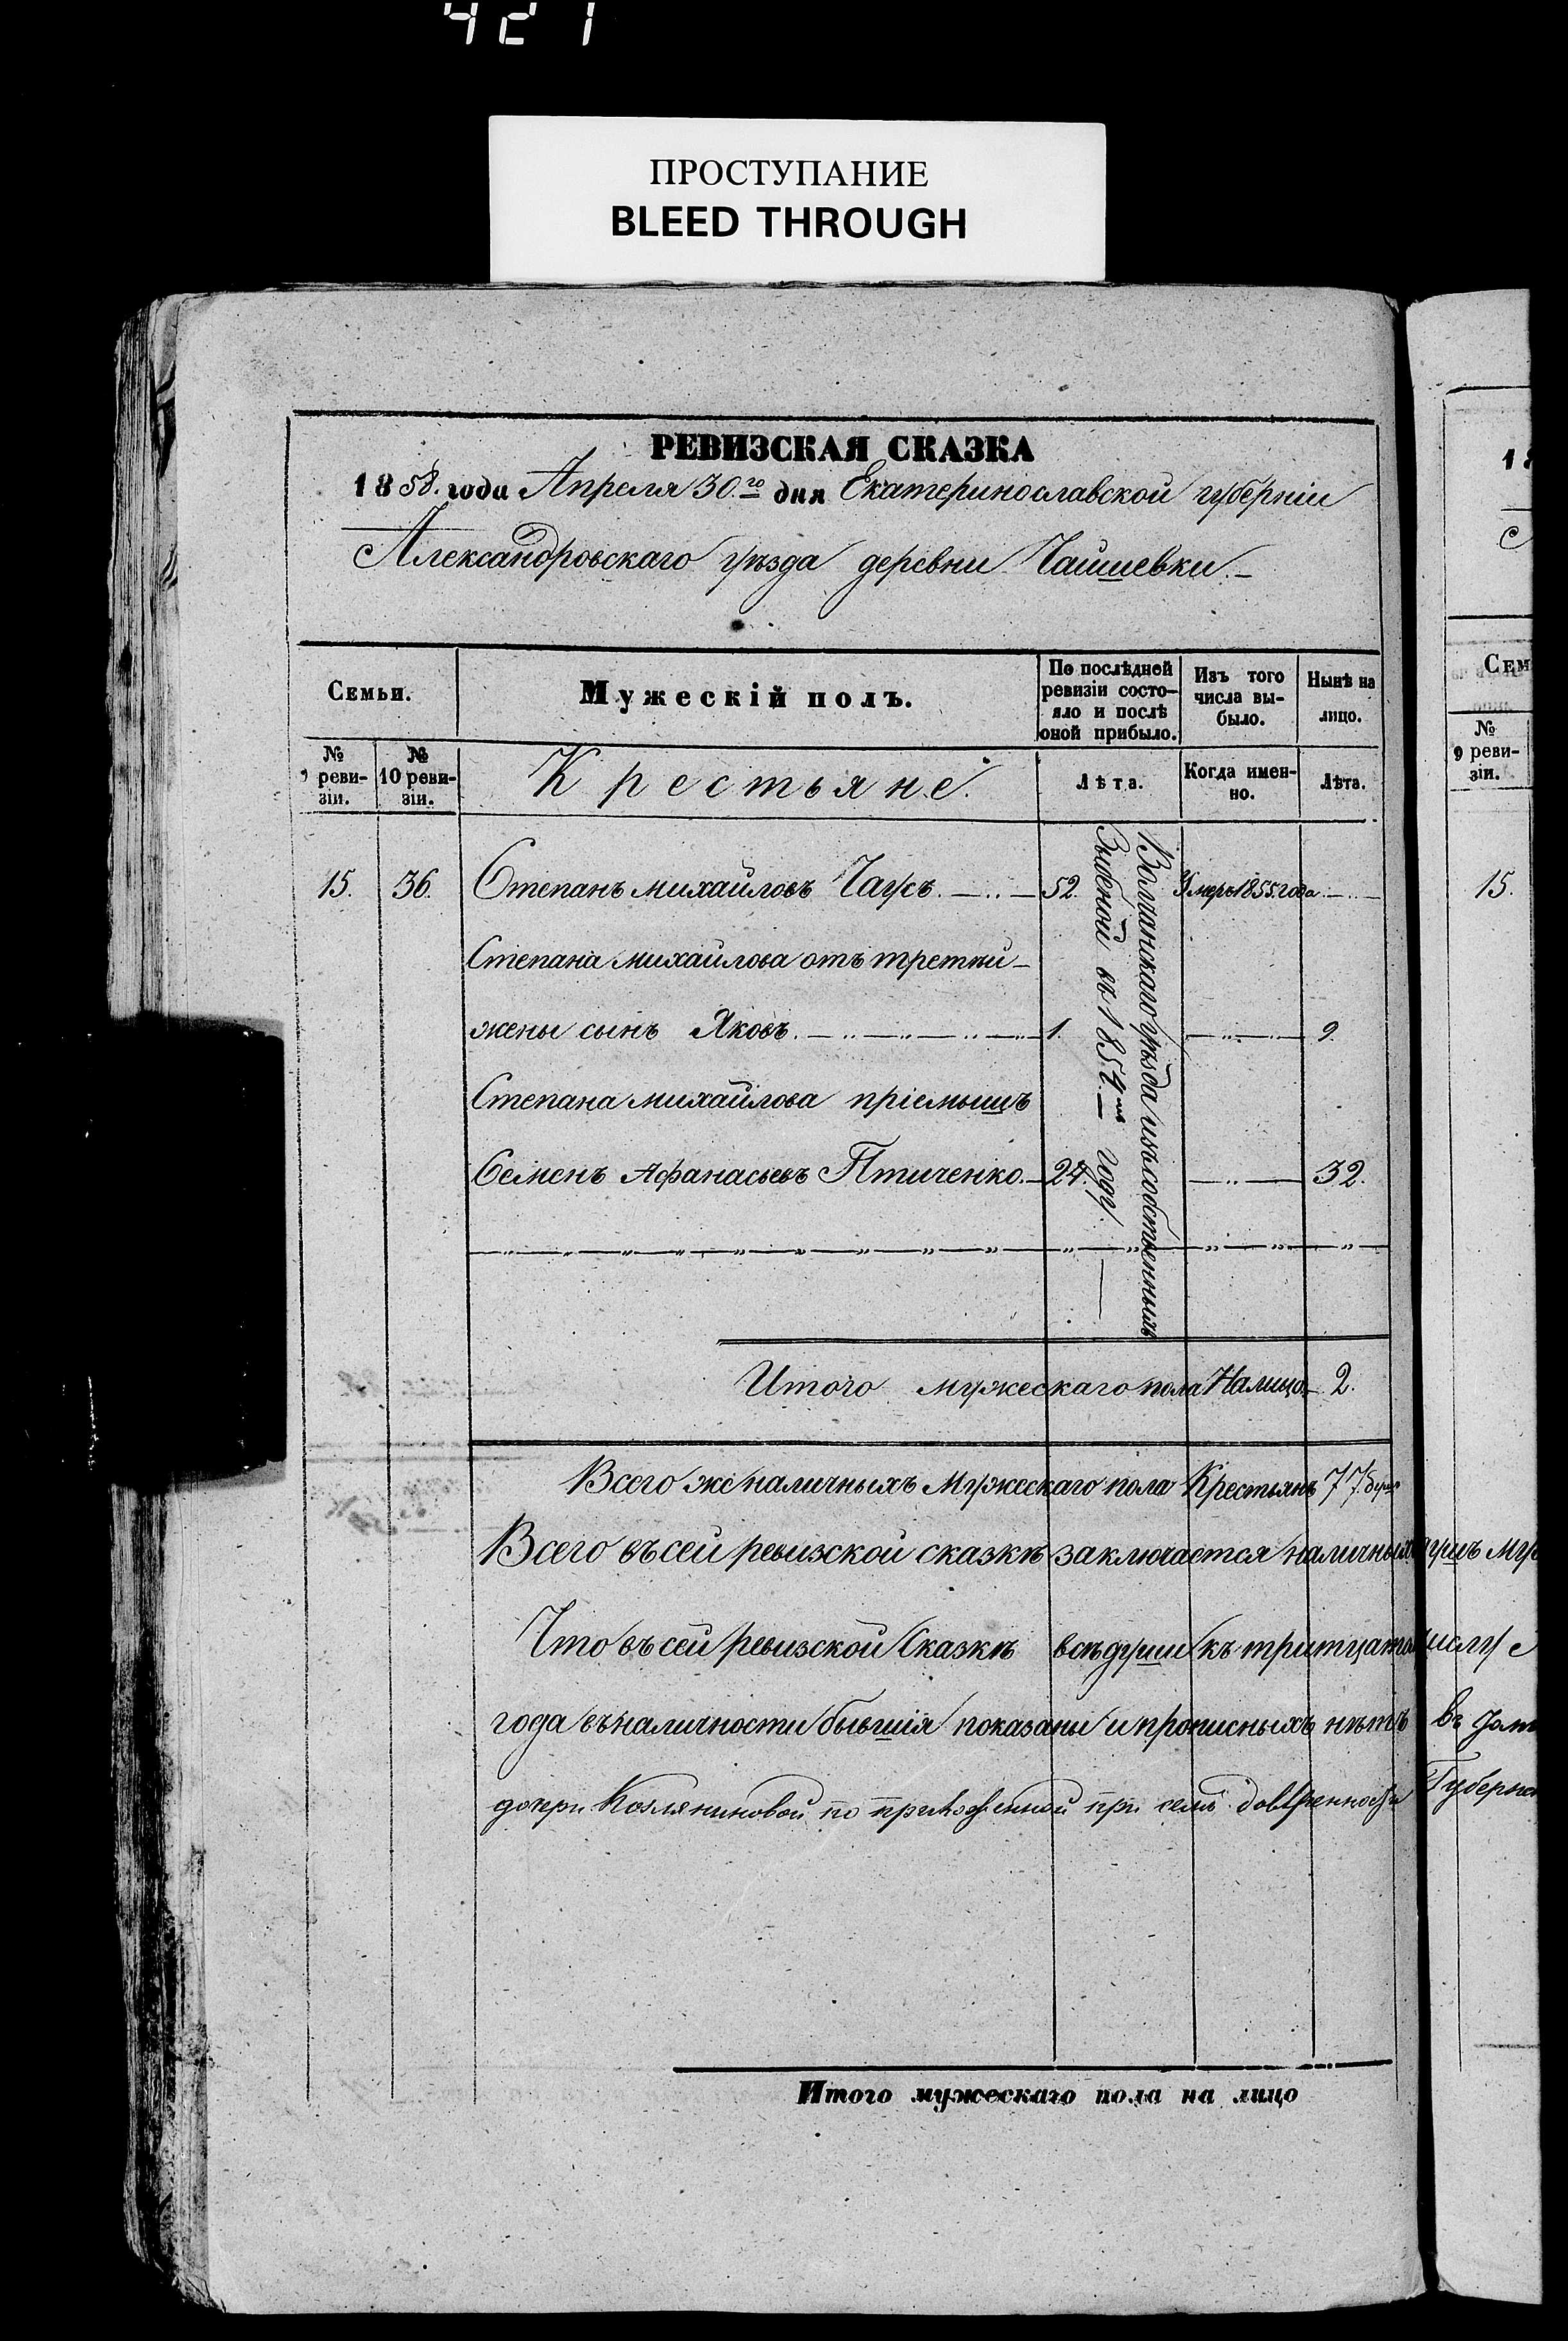 421
ПРОСТУПАНИЕ
BLEED THROUGH
РЕВИЗСКАЯ СКАЗКА
1858. года Апреля 30.го дня Екатеринославской губерніи
Александровскаго уѣзда деревни Чаишевки.
Семьи.
Мужескій полъ.
По послѣдней ревизіи состо-
яло и послѣ
оной прибыло.
Изъ того
числа вы-
было.
Нынѣ на
лицо.
№
9 реви-
зіи.
№
10 реви-
зіи.
Крестьяне.
Лѣта.
Когда имен-
но.
Лѣта.
15. 36. Степанъ михайловъ Чаусъ. 52. Умеръ 1855. года
Степана михайлова отъ третьей
жены сынъ Яковъ. 1. 9.
Степана михайлова пріемышъ
Семенъ Афанасьевъ Птиченко. 24. 32.
Волчанскаго уѣзда изъ собственныхъ
въ 1854 году.
Итого мужескаго пола Налицо 2.
Всего же наличныхъ Мужескаго пола Крестьянъ 77. душъ
Всего въ сей ревизской сказкѣ заключается наличныхъ душъ
Что въ сей ревизской Сказкѣ всѣ души къ числу
года въ наличности бывшія показаны и прописныхъ нѣтъ въ
дочери Козляниновой по приложенной при семъ довѣренности
Итого мужескаго пола на лицо
18
Сем
№
9 реви-
зіи.
15.